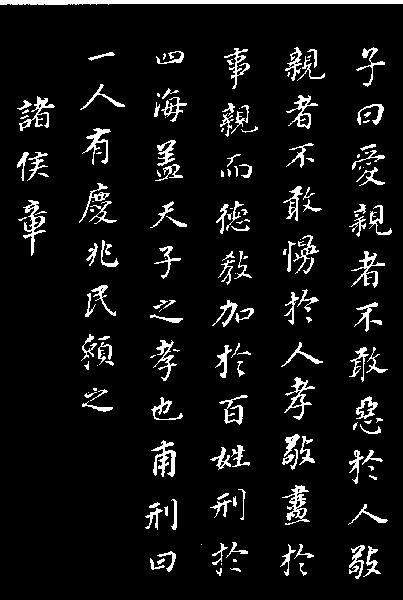 子曰愛親者不敢惡於人敬
親者不敢慢於人孝敬盡於
事親而德教加於百姓刑於
四海盖天子之孝也甫刑曰
一人有慶兆民賴之
諸侯章